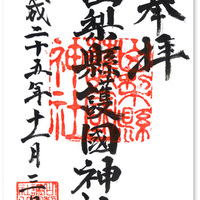 奉拝
山梨縣護國神社
平成二十五年十一月二日
山梨縣
護國
神社